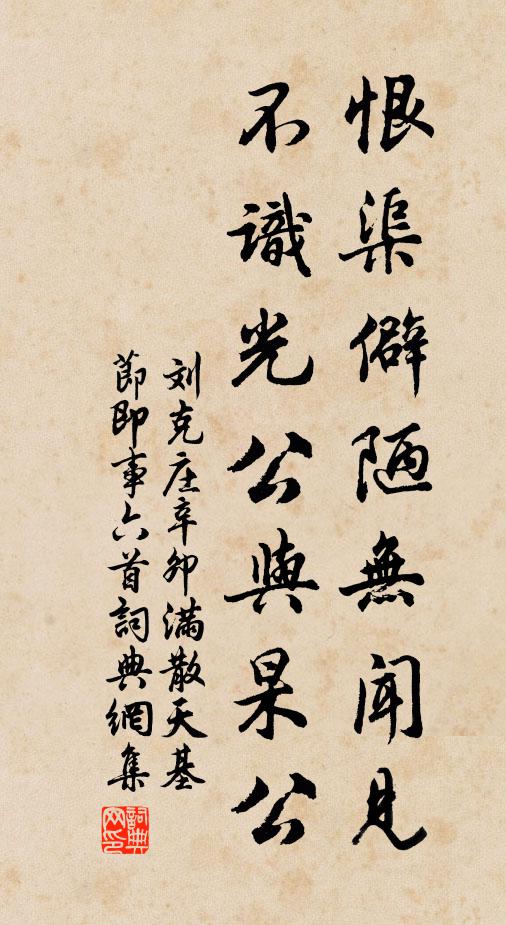 恨渠僻陋無聞見
不識光公與杲公
刘克庄辛卯满散天基
節即事六首詞典網集
詞典网印